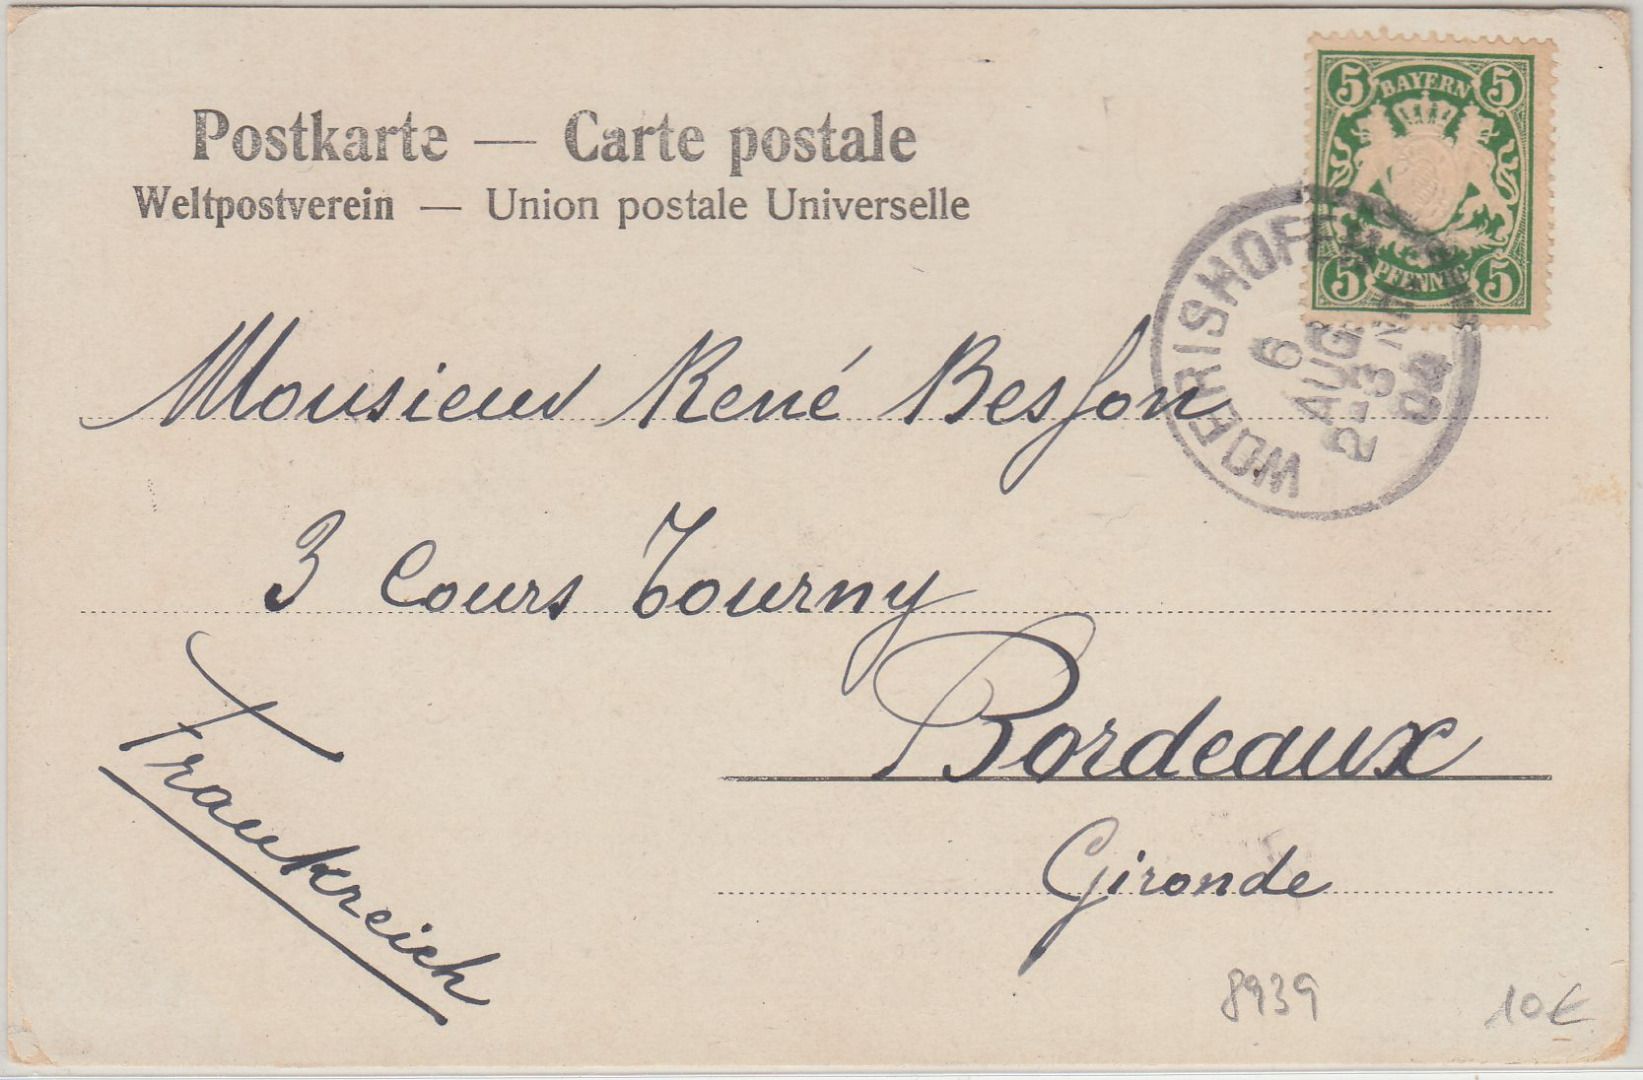 Postkarte — Carte postale
Weltpostverein — Union postale Universelle
5 BAYERN 5
5 PFENNIG 5
WOERISHOFEN
6
AUG.
2-3 N
04
Monsieur René Besson
3 Cours Tourny
Bordeaux
Gironde
Frankreich
8939
10€